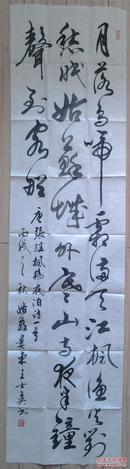 月落烏啼霜滿天江楓漁火對
愁眠姑蘇城外寒山寺夜半鐘
聲到客船
唐張繼楓橋夜泊詩一首
丙戌之秋姑蘇吳東王士